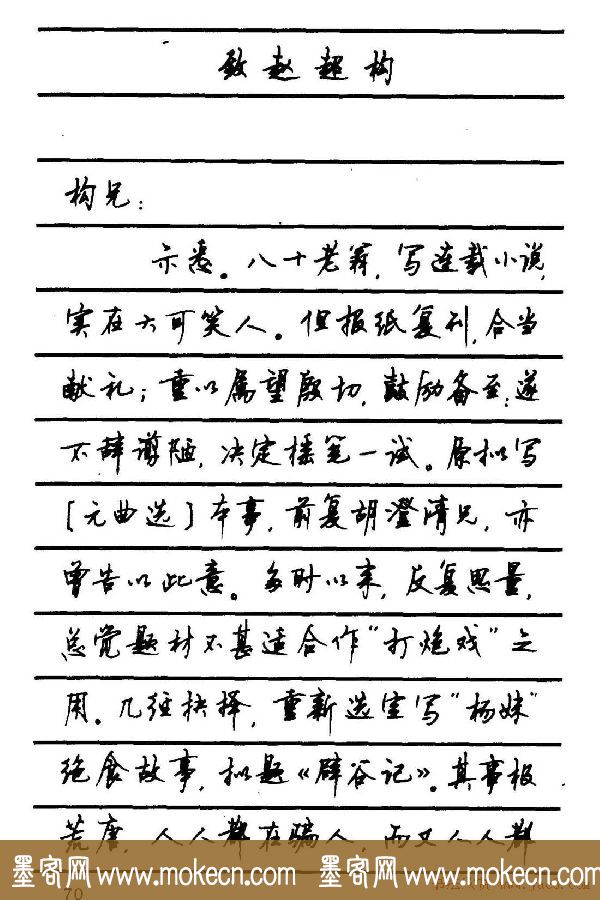 致赵超构
构兄：
示悉。八十老翁，写连载小说，
实在大可笑人。但报纸复刊，合当
献礼；重以属望殷切，鼓励备至；遂
不辞谫陋，决定搦笔一试。原拟写
［元曲选］本事，前复胡澄清兄，亦
曾告以此意。多时以来，反复思量，
总觉题材不甚适合作“打炮戏”之
用。几经抉择，重新选定写“杨妹”
绝食故事，拟题《辟谷记》。其事极
荒唐，人人都在骗人，而又人人都
墨客网 www.mokecn.com 墨客网 www.mokecn.com
70